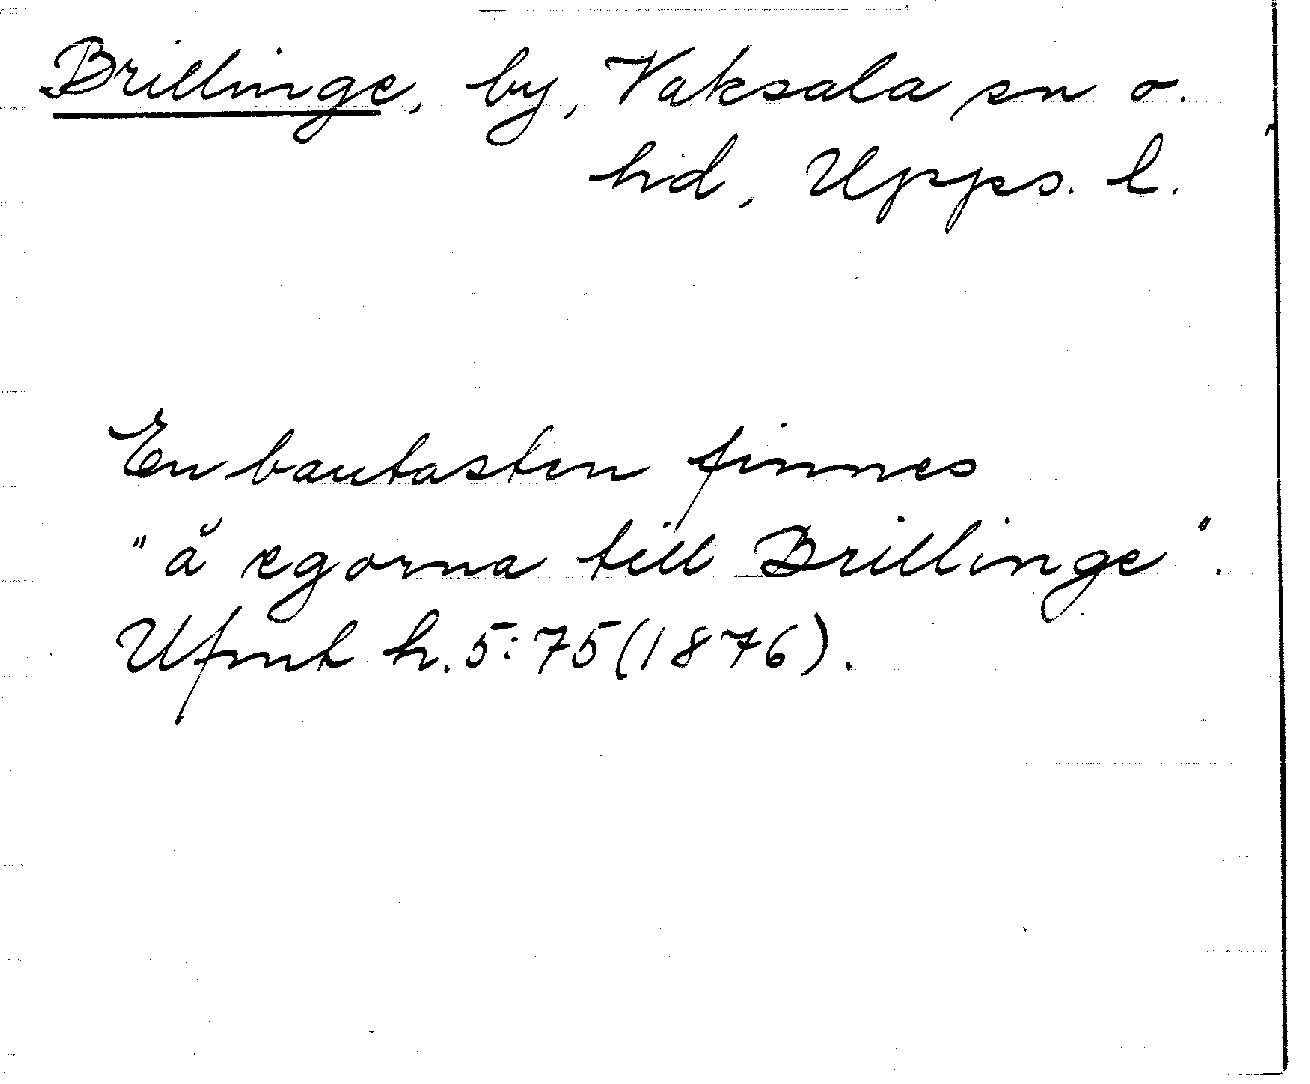 Brillinge, by, Vaksala sn o.
hd, Upps. l.
En bautasten finnes
"å egorna till Brillinge".
Ufmt h.5:75(1876).